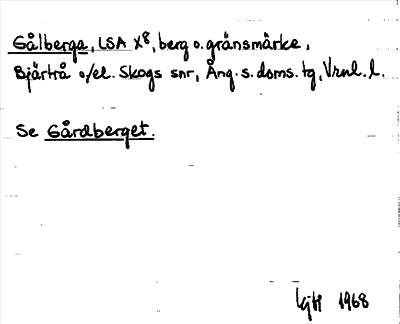 Gålberga, LSA X8, berg o. gränsmärke,
Bjärtrå o/el. Skogs snr, Ång. s. doms. tg, Vrnl. l.
Se Gårdberget.
1968